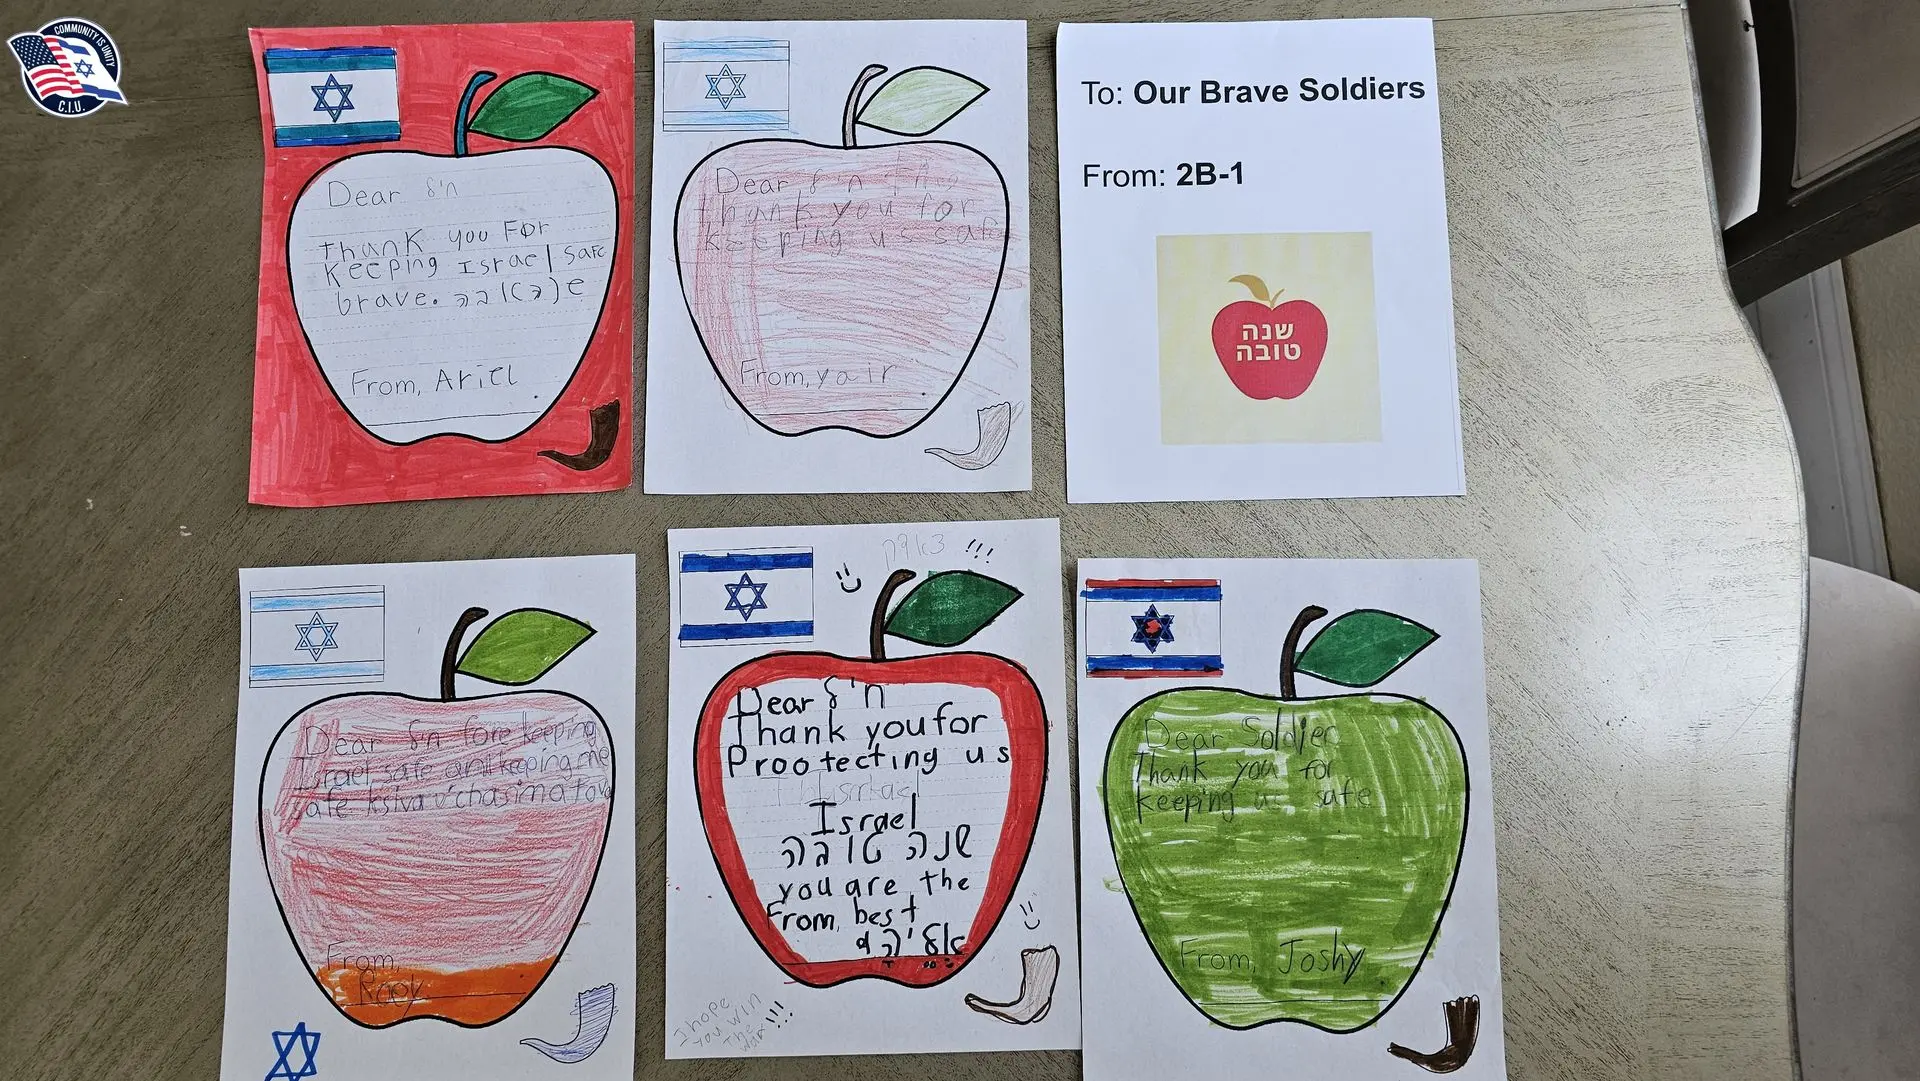 COMMUNITY IS UNITY
C.I.U.
Dear חייל
Thank you For
Keeping Israel safe
brave.
From, Ariel
Dear חייל
thank you for
keeping us safe
From, yair
To: Our Brave Soldiers
From: 2B-1
שנה
טובה
Dear חייל fore keeping
Israel safe and keeping me
safe ksiva v'chasima tova
From,
!!!
Dear חייל
Thank you for
Prootecting us
Israel
שנה טובה
you are the
From, best
I hope
you win
the
war!!!
Dear Soldier
Thank you for
keeping us safe
From, Joshy